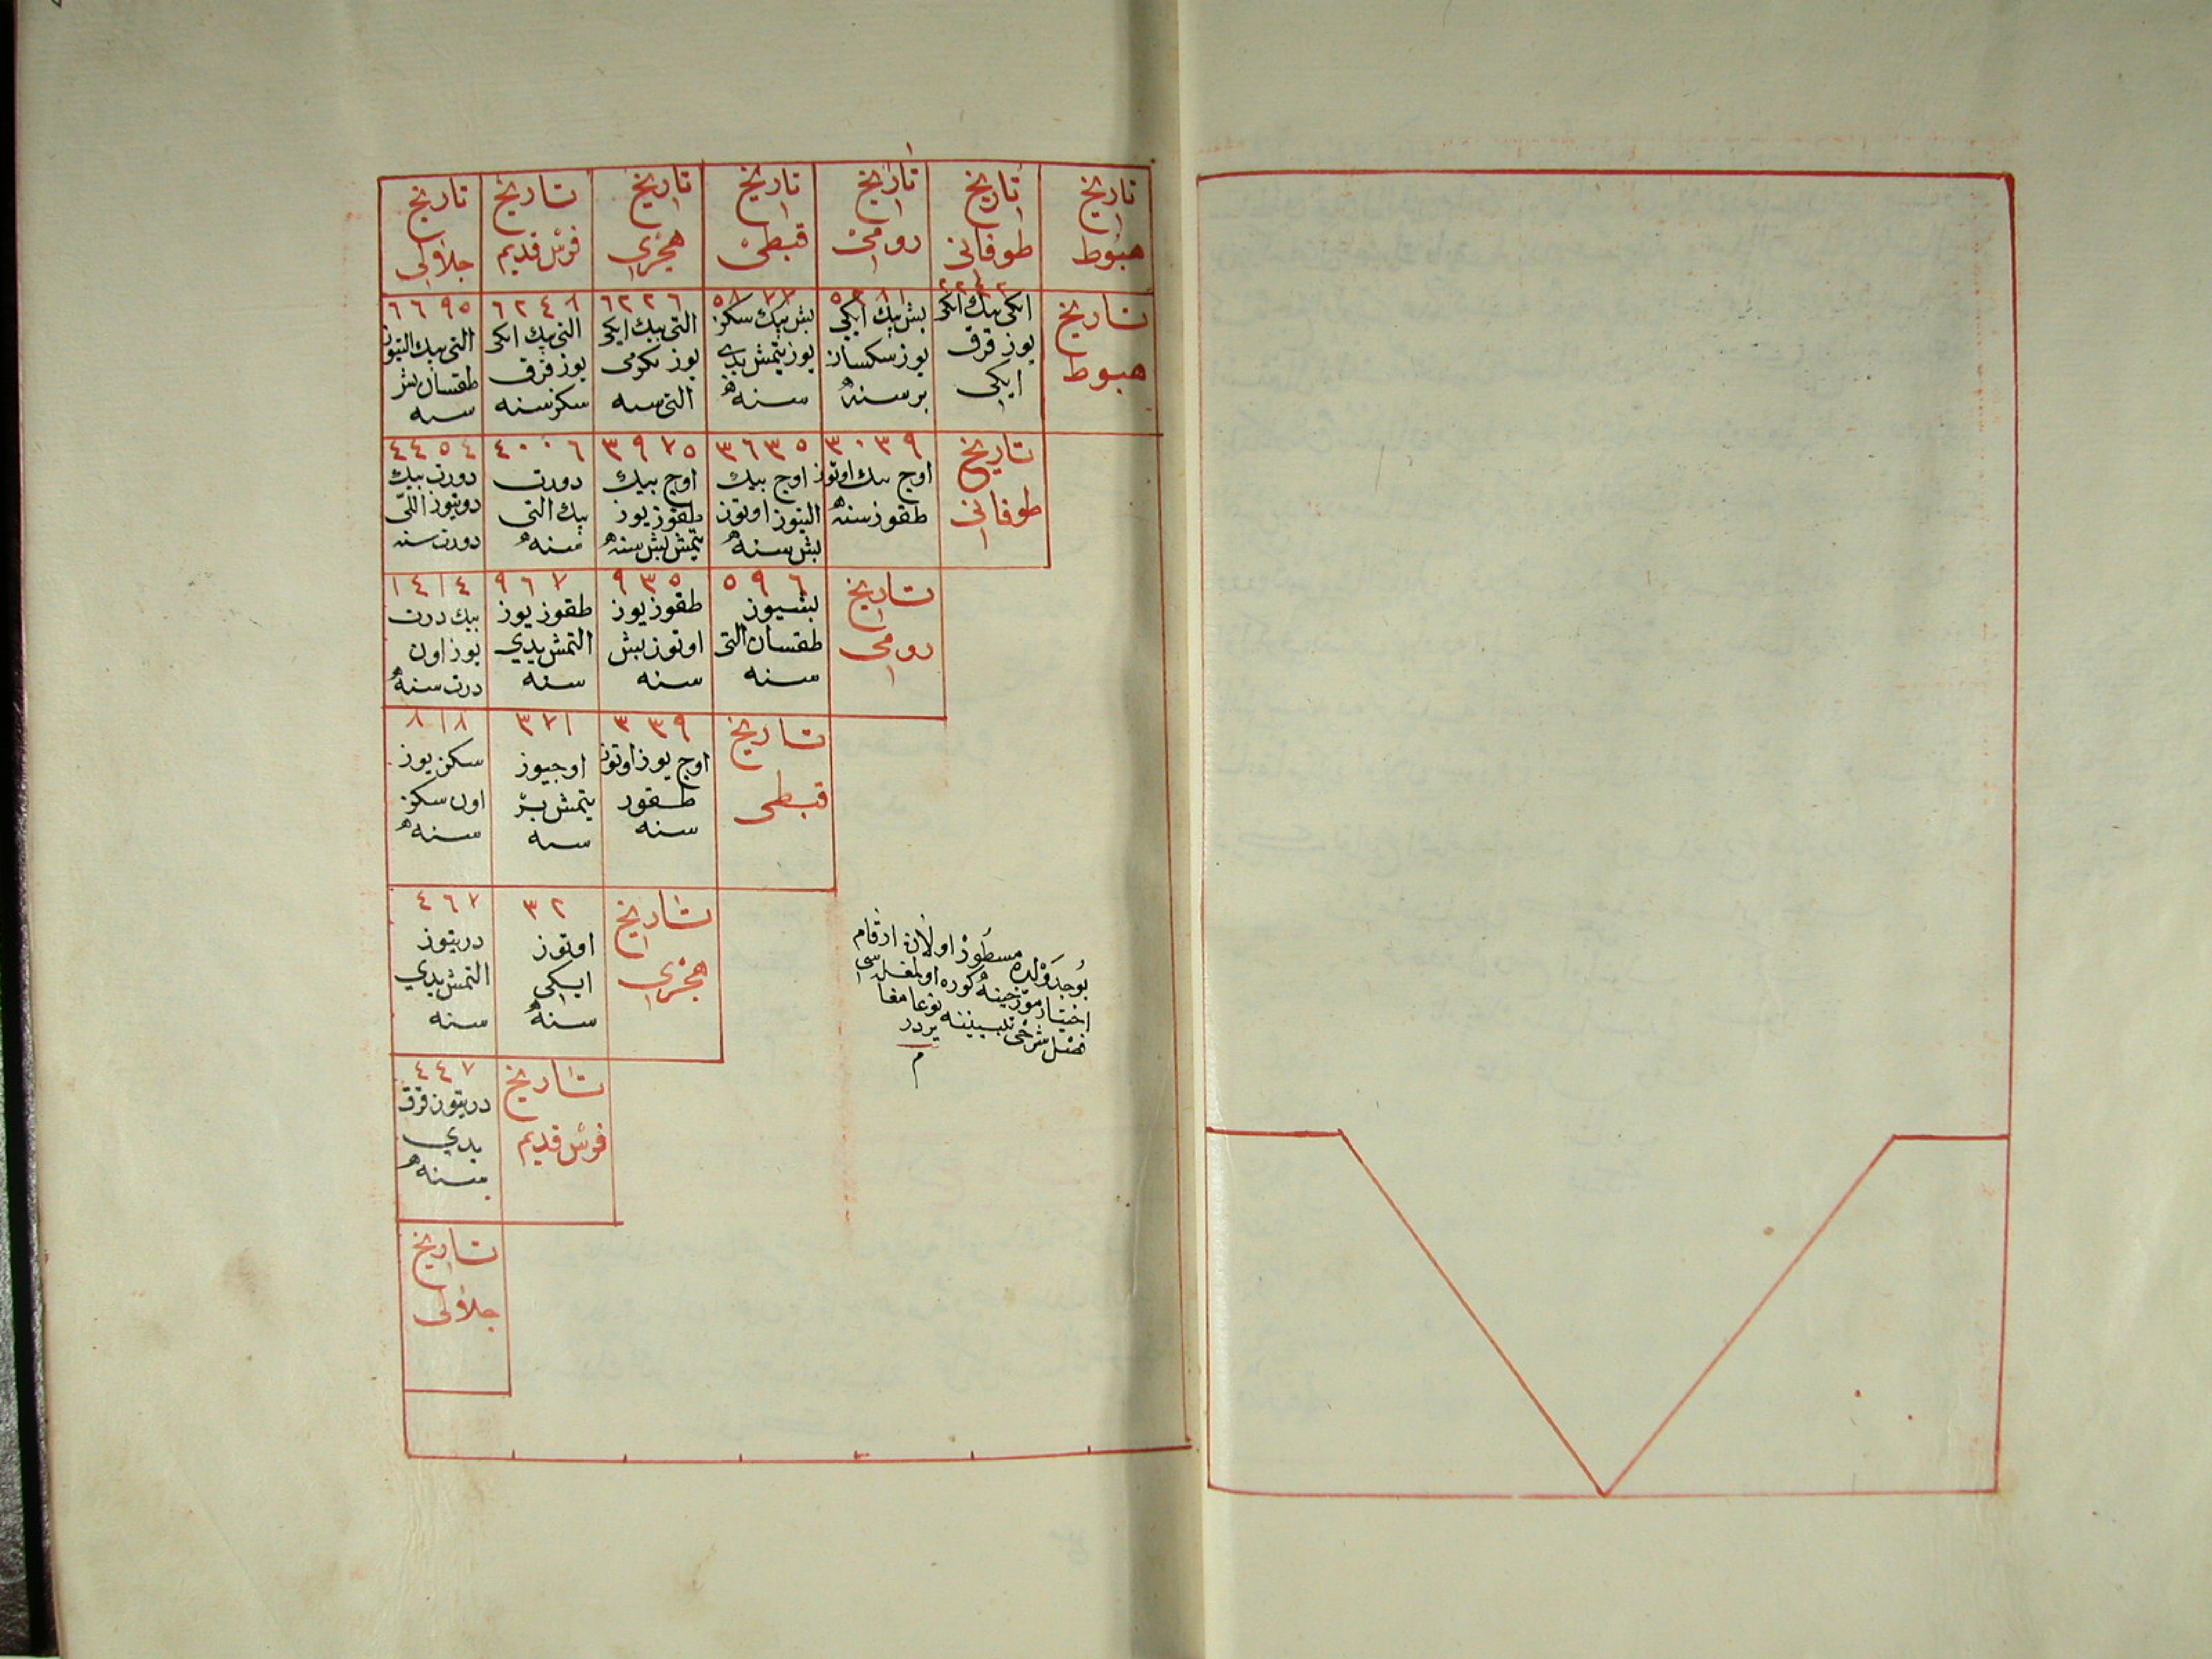 تاريخ هبوط
تاريخ طوفانى
تاريخ رومى
تاريخ قبطى
تاريخ هجرى
تاريخ فرس قديم
تاريخ جلالى
تاريخ
هبوط
٢٢٤٢
ايكى بيك ايكى
يوز قرق
ايكى
٥٢٨١
بش بيك ايكى
يوز سكسان
بر سنه
٥٨٧٧
بش بيك سكز
يوز يتمش يدى
سنه
٦٢٢٦
التى بيك ايكى
يوز يكرمى
التى سنه
٦٢٤٨
التى بيك ايكى
يوز قرق
سكز سنه
٦٦٩٥
التى بيك التيوز
طقسان بش
سنه
تاريخ
طوفانى
٣٠٣٩
اوج بيك اوتوز
طقوز سنه
٣٦٣٥
اوج بيك
التيوز اوتوز
بش سنه
٣٩٧٥
اوج بيك
طقوز يوز
يتمش بش سنه
٤٠٠٦
دورت
بيك التى
سنه
٤٤٥٤
دورت بيك
دوتيوز اللى
دورت سنه
تاريخ
رومى
٥٩٦
بشيوز
طقسان التى
سنه
٩٣٥
طقوز يوز
اوتوز بش
سنه
٩٦٧
طقوز يوز
التمش يدي
سنه
١٤١٤
بيك درت
يوز اون
درت سنه
تاريخ
قبطى
٣٣٩
اوج يوز اوتوز
طقوز
سنه
٣٧١
اوجيوز
يتمش بر
سنه
٨١٨
سكز يوز
اون سكز
سنه
تاريخ
هجرى
٣٢
اوتوز
ايكى
سنه
٤٦٧
درتيوز
التمش يدي
سنه
تاريخ
فرس قديم
٤٤٧
درتيوز قرق
يدي
سنه
تاريخ
جلالى
بو جدولده مسطور اولان ارقام
اختيار مورخينه كوره اولمغله
فضل شرحى نوعا مغا
يردر
م